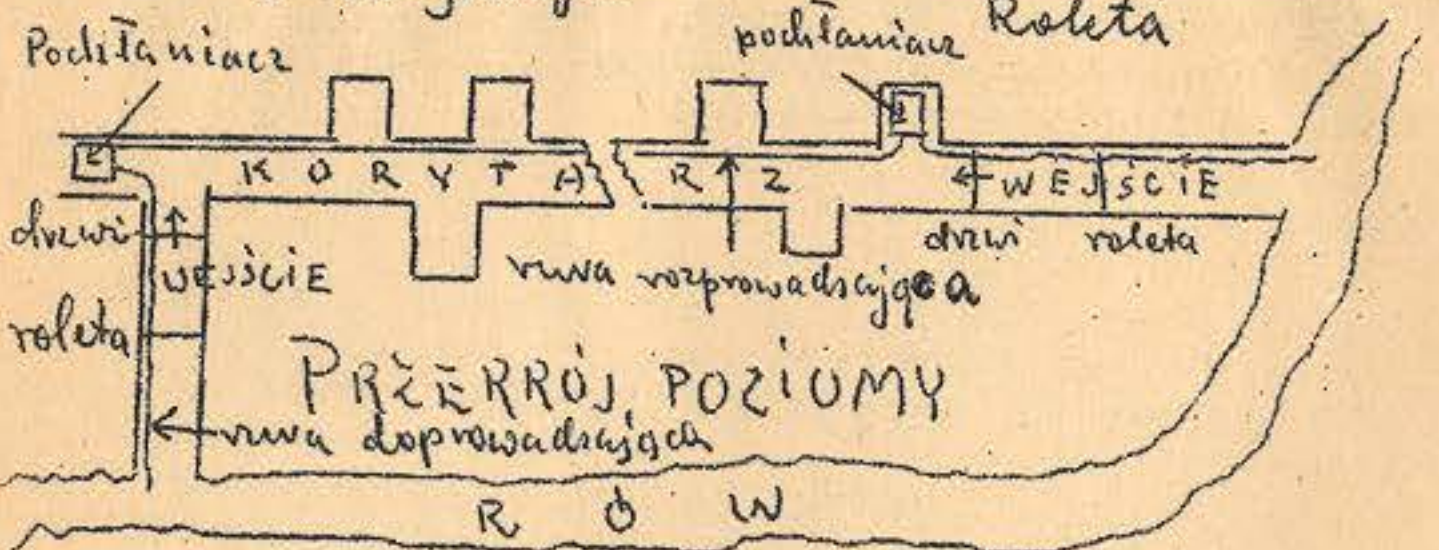 Roleta
Podłaniacz
podłaniacz
KORYTA RZ
← WEJŚCIE
drzwi
drzwi
roleta
WEJŚCIE
rura rozprowadzająca
roleta
PRZEKRÓJ POZIOMY
rura doprowadzająca
RÓW